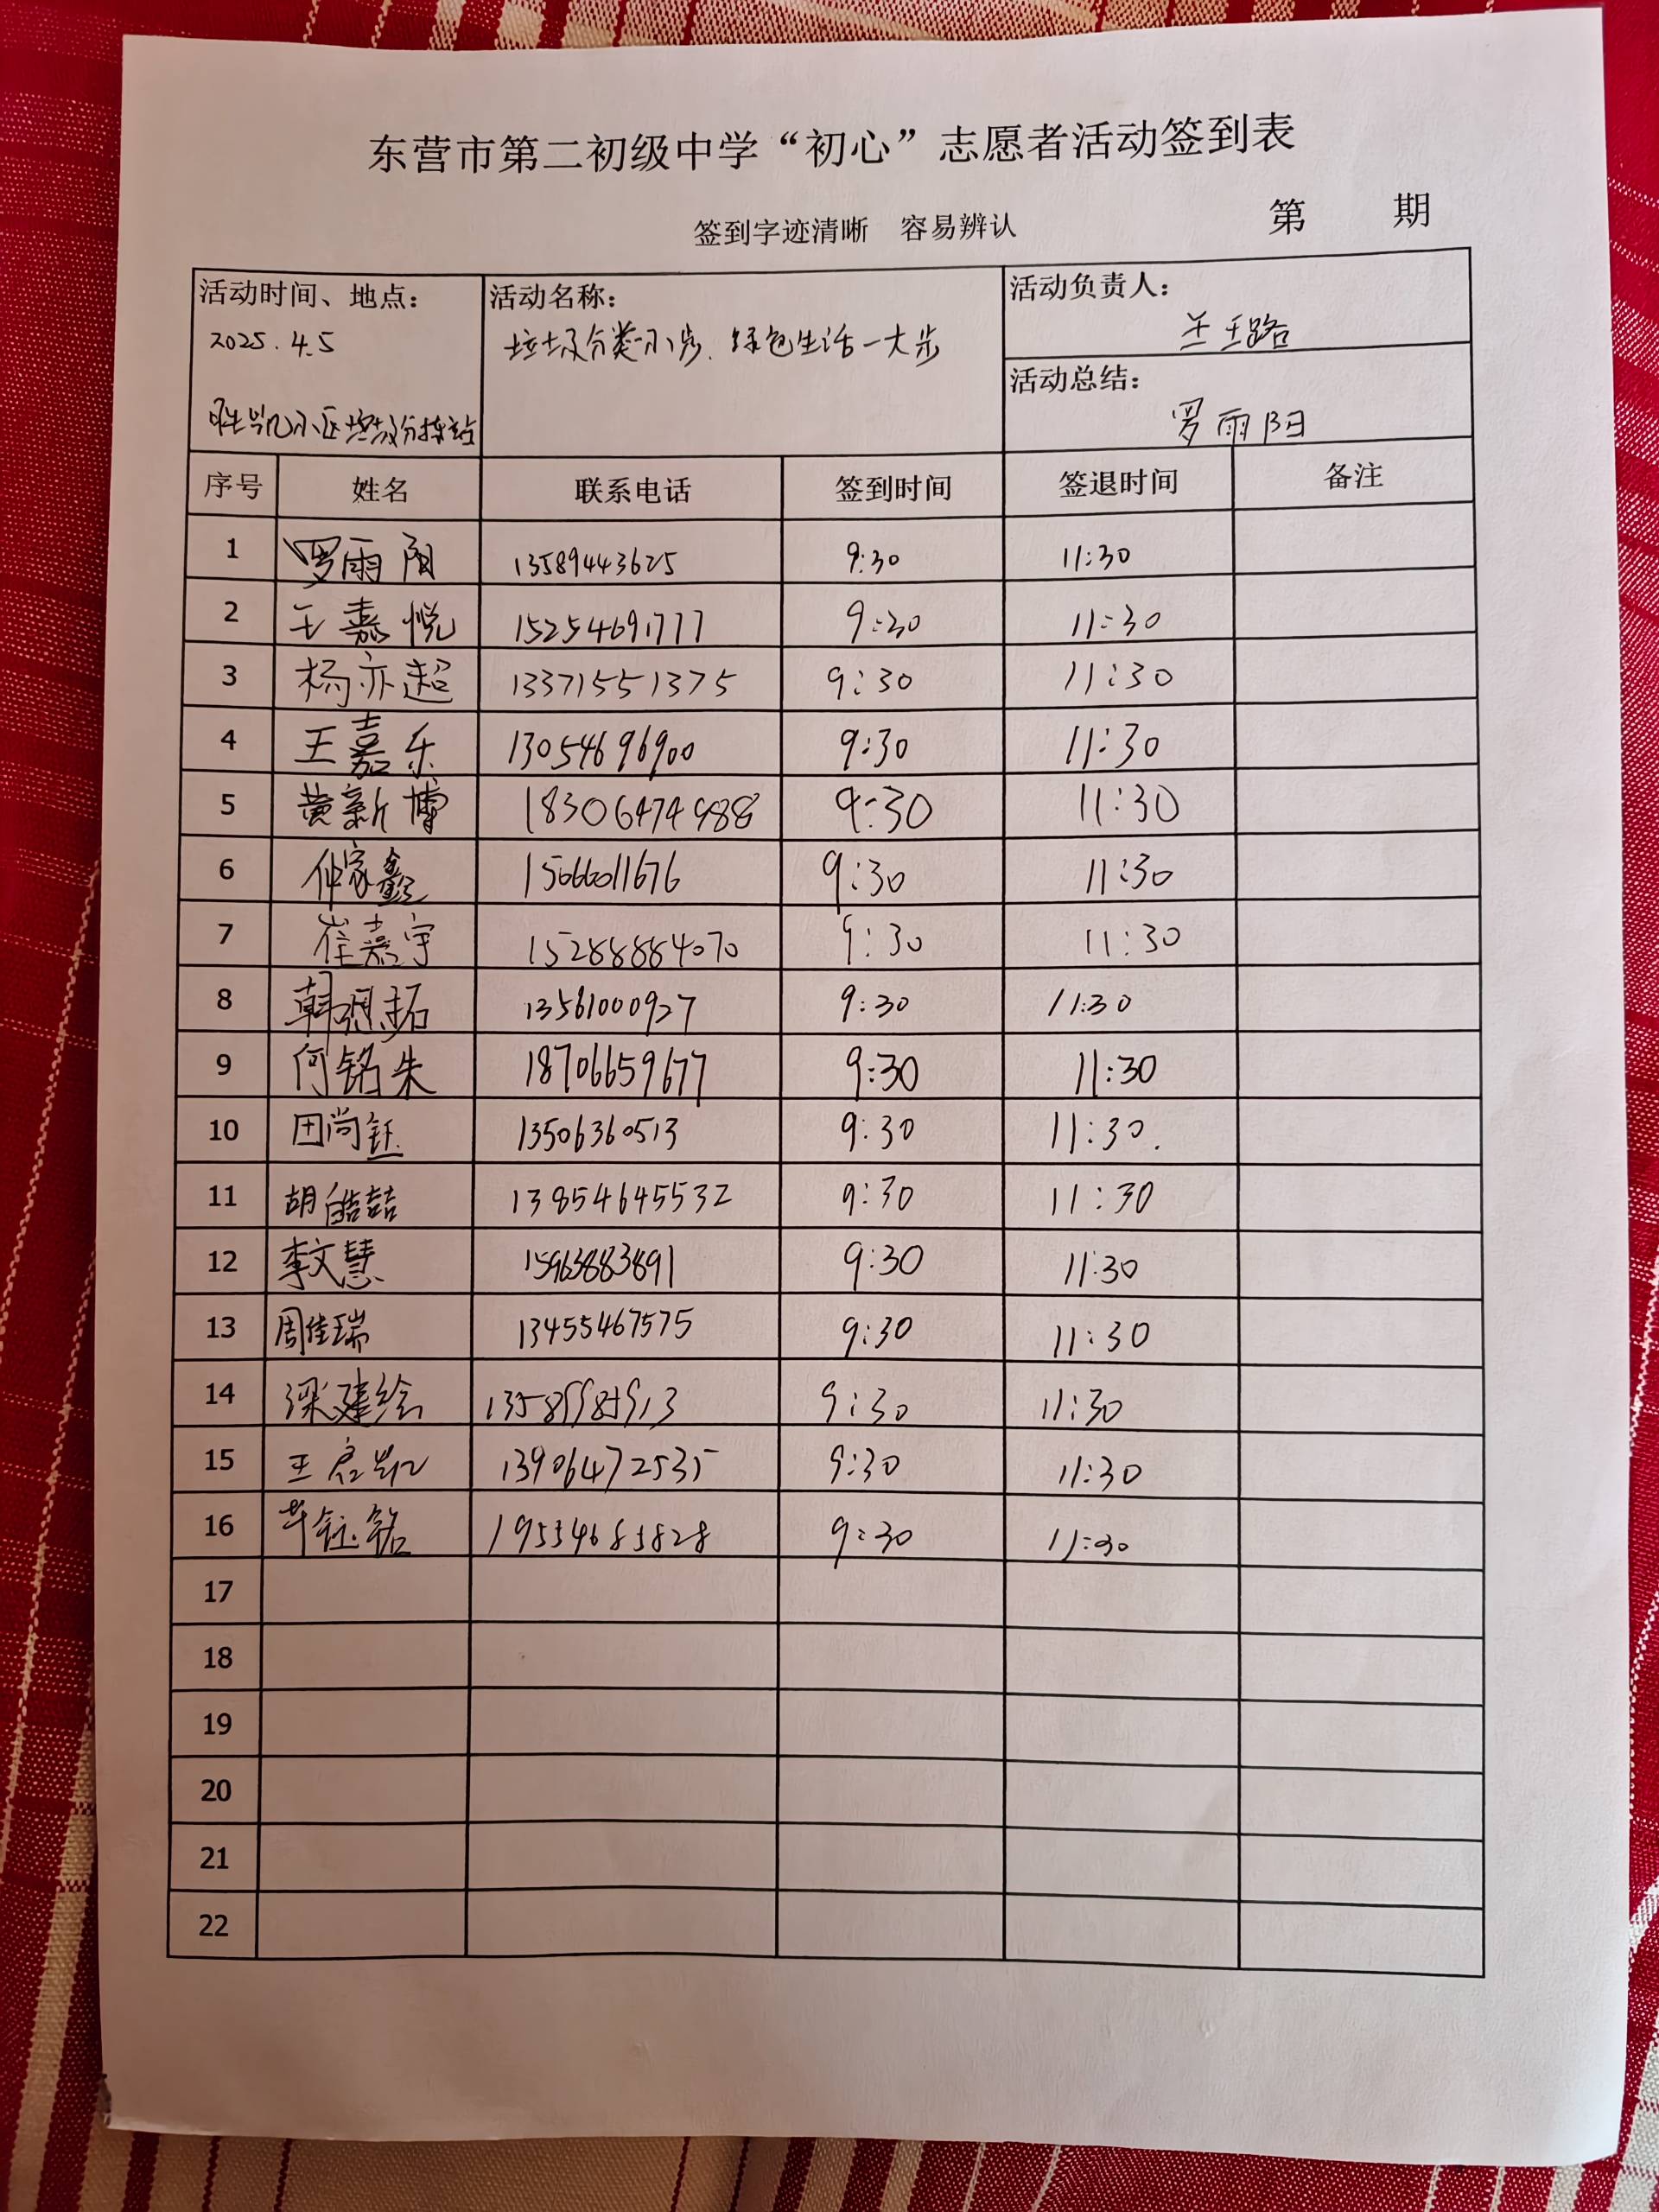 东营市第二初级中学“初心”志愿者活动签到表
签到字迹清晰 容易辨认 第 期
活动时间、地点： 活动名称： 活动负责人：
2025.4.5 垃圾分类一小步.绿色生活一大步 王路
胜凯小区垃圾分拣站 活动总结：
罗雨阳
序号 姓名 联系电话 签到时间 签退时间 备注
1 罗雨阳 13589443625 9:30 11:30
2 王嘉悦 15254691777 9:30 11:30
3 杨亦超 13371551375 9:30 11:30
4 王嘉乐 13054696900 9:30 11:30
5 黄新博 18306474988 9:30 11:30
6 仲家鑫 15066011676 9:30 11:30
7 崔嘉宇 15288884070 9:30 11:30
8 韩恩拓 13561000927 9:30 11:30
9 何铭朱 18706659677 9:30 11:30
10 田尚钰 13506360513 9:30 11:30.
11 胡皓喆 13854645532 9:30 11:30
12 李文慧 15963883891 9:30 11:30
13 周佳瑞 13455467575 9:30 11:30
14 梁建绘 13589985913 9:30 11:30
15 王启凯 13906472535 9:30 11:30
16 钰铭 9:30 11:30
17
18
19
20
21
22